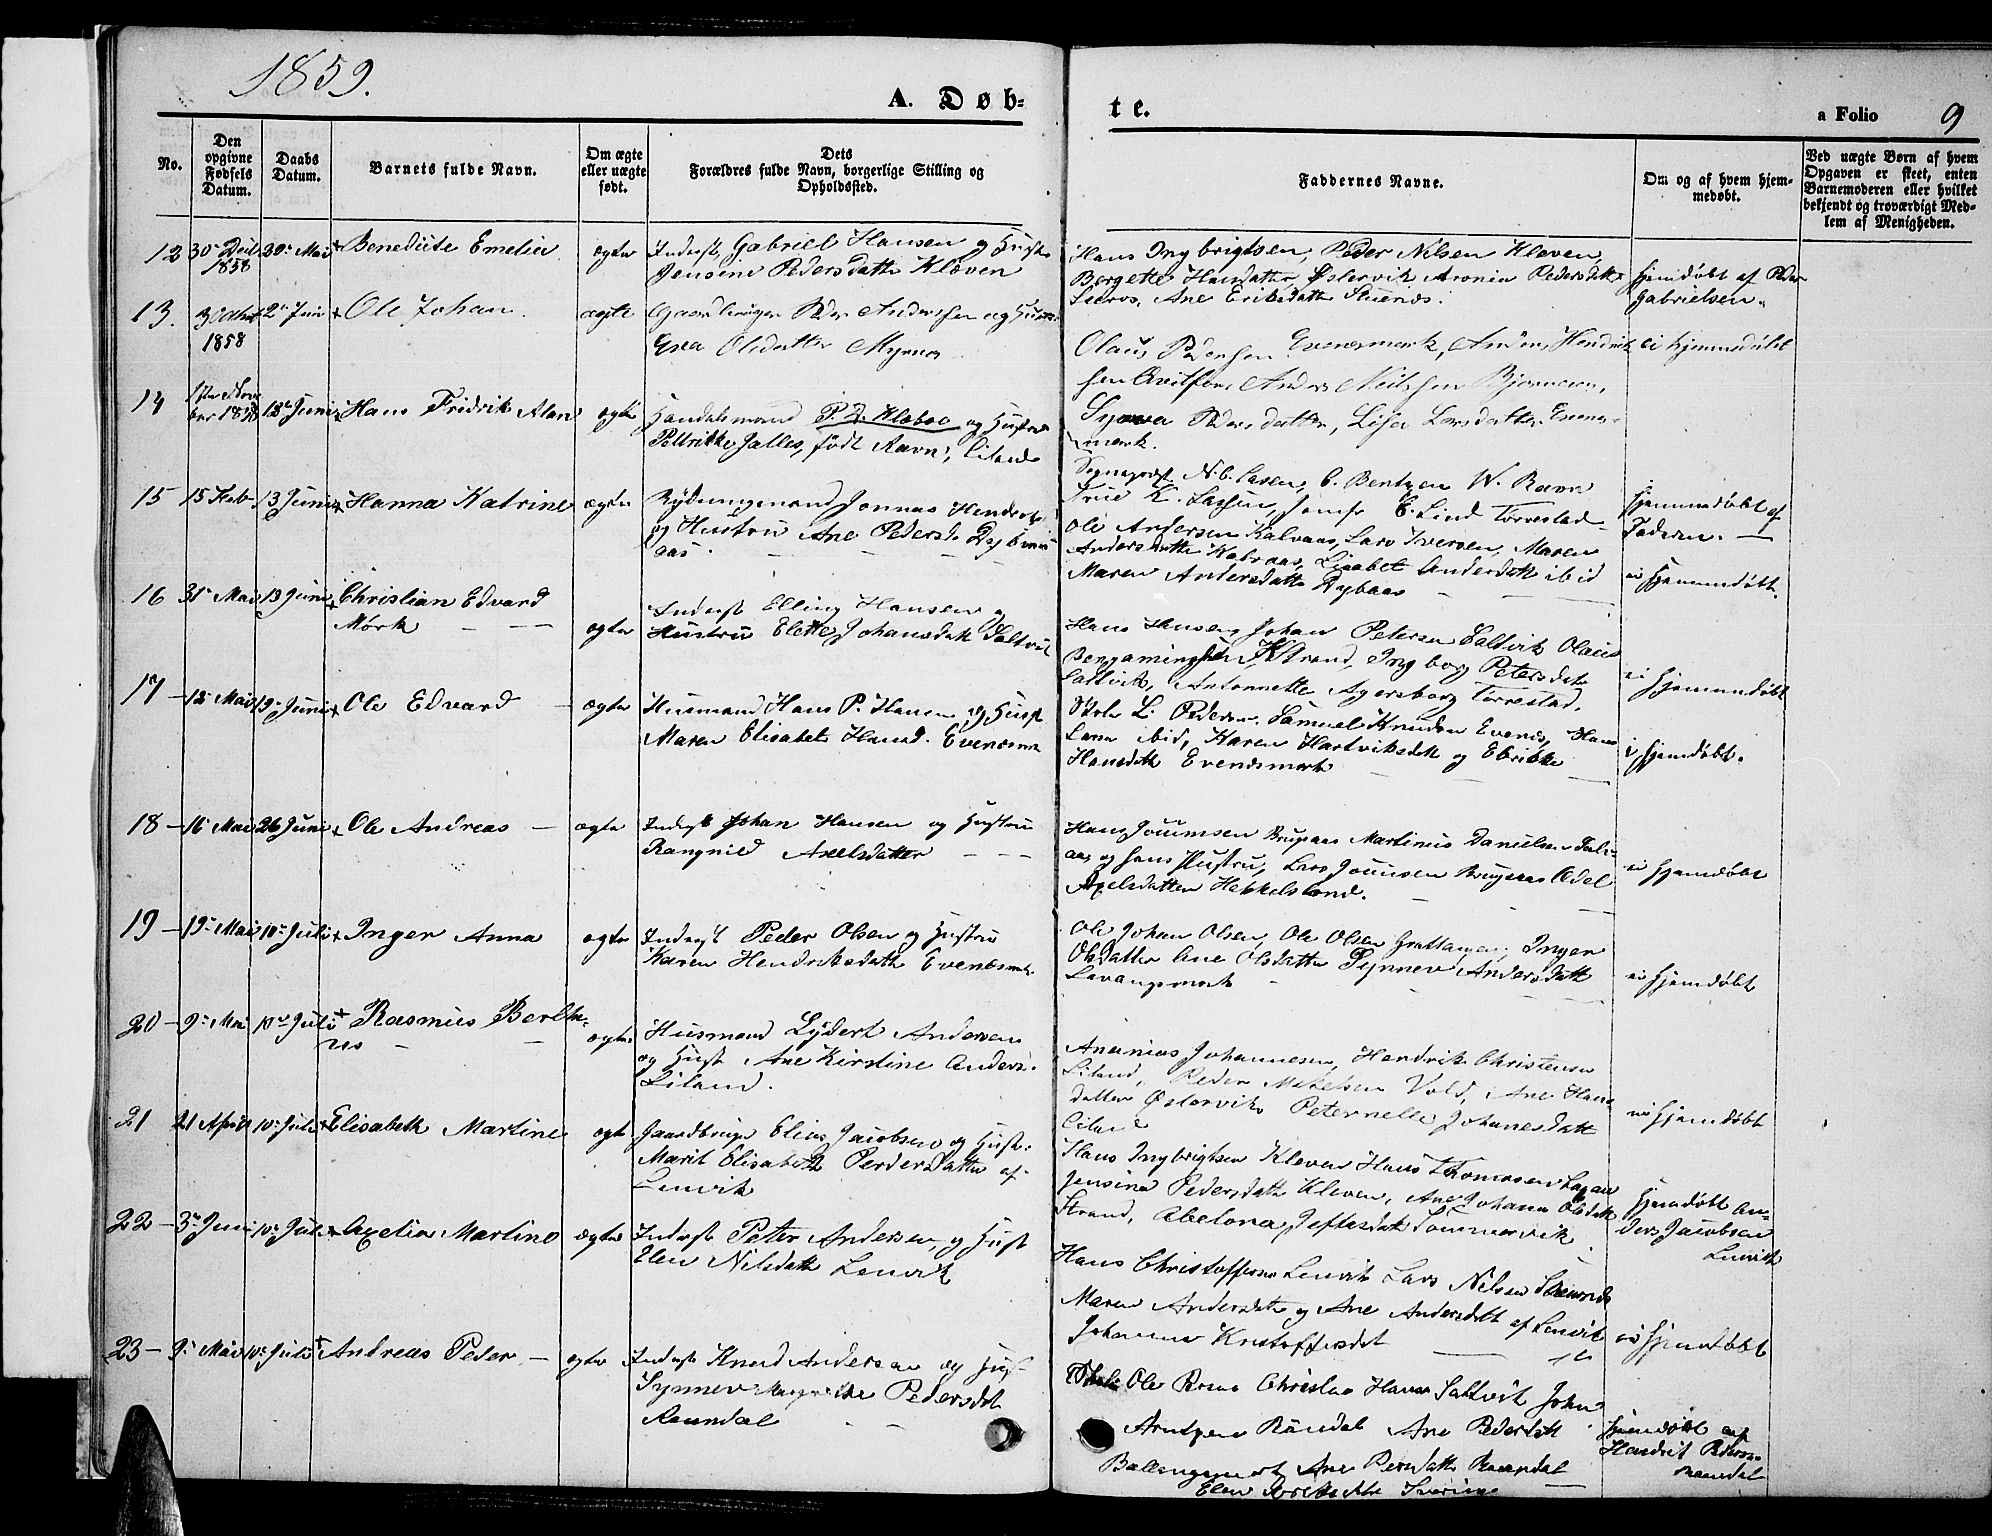 1859.
A. Døb-
te.
a Folio 9
No.
Den opgivne Fødsels Datum.
Daabs Datum.
Barnets fulde Navn.
Om ægte eller uægte født.
Dets Forældres fulde Navn, borgerlige Stilling og Opholdssted.
Faddernes Navne.
Om og af hvem hjemmedøbt.
Ved uægte Børn af hvem Opgaven er skeet, enten Barnemoderen eller hvilket bekjendt og troværdigt Medlem af Menigheden.
12 30 1858 30 Mai Benedicte Emelia ægte Inderst Gabriel Hansen og Hustr
Jensine Pedersdatter Kleven
Hans Ingbrigtsen, Peder Nilsen Kleven,
Bergette Hansdatter Østervik Aronia Pedersdatter
Ane Eriksdatter
hjemdøbt af Peder
Gabrielsen.
13. 1858 2 Juni Ole Johan ægte Gaardbruger Peder Andersen og Hustr
Eva Olsdatter Myrnes
Olaus Pedersen Evenesmark, Anders Hendrik
sen Anders
ei hjemmedøbt
14 1ste Novbr 1858 13 Juni Hans Fridrik Alan ægte Handelsmand P. D. Klæboe og Hustru
Jalles, født Ravn, Liland
Pedersdatter, Lisa Larsdatter Evenes-
mark.
Sognepræst N. C. Lassen, C. Bentzen W. Ravn
Frue K. Lassen, Jomfr E. Lind Torrestad
hjemmedøbt af
Faderen.
15 15 Feb 13 Juni Hanna Katrine ægte Rydningsmand Jonnas Hendrik
og Hustru Ane Pedersd
Ole Andersen Kalvaas, Lars Iversen, Maren
Andersdatter Kalvaas, Lisabet Andersdatt ibid
Maren Andersdatt Dybaas
ei hjemmedøbt.
16 31 Mai 19 Juni Christian Edvard
Mørk ægte Inderst Elling Hansen og
Hustru Elette Johansdatt Saltvik
Hans Hansen, Johan Petersen Saltvik Olaus
Bengaminsen Strand, Ingborg Petersdatt
Saltvik, Antonnette Agersborg Torrestad.
ei hjemmedøbt
17 12 Mai 19 Juni Ole Edvard ægte Husmand Hans P. Hansen og Hust
Maren Elisabet Hansd. Evenesmark
L. Pedersen. Samuel Knudsen Evenes, Hans
Larsen ibid, Karen Hartviksdatt og Elrikke
Hansdatt Evenesmark
ei hjemdøbt.
18 16 Mai 26 Juni Ole Andreas ægte Inderst Johan Hansen og Hustru
Rangnild Axelsdatter
Hans Martinus Danielsen
og hans Hustru, Lars
Axelsdatter Hekkelstrand.
ei hjemdøbt
19 19 Mai 10 Juli Inger Anna ægte Inderst Peder Olsen og Hustru
Karen Hendriksdatt Evenesmrk.
Ole Johan Olsen, Ole Olsen Grattangen, Inger
Olsdatter Ane Olsdatter Synnev Andersdatt
Lavangsmark
ei hjemdøbt
20 9 Mai 10 Juli Rasmus Berthi-
nes ægte Husmand Lydert Andersen
og Hust Ane Kirstine Anders.
Liland.
Ananias Johannesen, Hendrik Christensen
Liland, Peder Mikelsen Vold, Ane Hans-
datter Østervik, Peternelle Johanesdatt
Liland
ei hjemdøbt
21 21 April 10 Juli Elisabeth Martine ægte Gaardbruger Elias Jacobsen og Hust.
Marit Elisabeth Pedersdatter af
Lenvik
Hans Ingbrigtsen Kleven Hans Thomasen
Jensine Pedersdatt Kleven, Ane Johana Olsdatt
Strand, Abelona Jeftesdatt Sommervik
hjemdøbt An-
ders Jacobsen
Lenvik
22 3 Juni 10 Juli Axelia Martine ægte Inderst Peter Andersen, og Hust
Elen Nilsdatt Lenvik
Hans Christoffersen Lenvik Lars Nilsen
Maren Andersdatt og Ane Andersdatt af Lenvik
Johanna Kristoffersdat
ei hjemdøbt
23 9 Mai 10 Juli Andreas Peder ægte Inderst Knud Andersen og Hust
Synnev Margrethe Pedersdat
Raundal
Ole Christian Hansen Saltvik John
Arntzen Røndal Ane Pedersdatt
Ballangsmark Ane Persdatt Raandal
Elen
hjemdøbt af
Hendrik Pedersen
Raandal